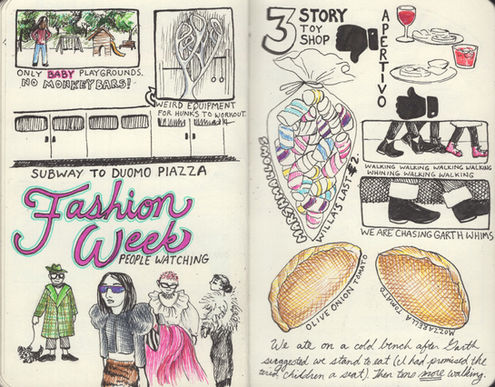 ONLY BABY PLAYGROUNDS.
NO MONKEYBARS!
WEIRD EQUIPMENT
FOR HUNKS TO WORKOUT.
SUBWAY TO DUOMO PIAZZA
Fashion
Week
PEOPLE WATCHING
3 STORY
TOY
SHOP
APERTIVO
MARSHMALLOWS
WILLA'S LAST €2.
WALKING WALKING WALKING WALKING
WHINING WALKING WALKING
WE ARE CHASING GARTH WHIMS
OLIVE ONION TOMATO
MOZZARELLA TOMATO
We ate on a cold bench after Garth
suggested we stand to eat (I had promised the
tired children a seat). Then tons more walking.